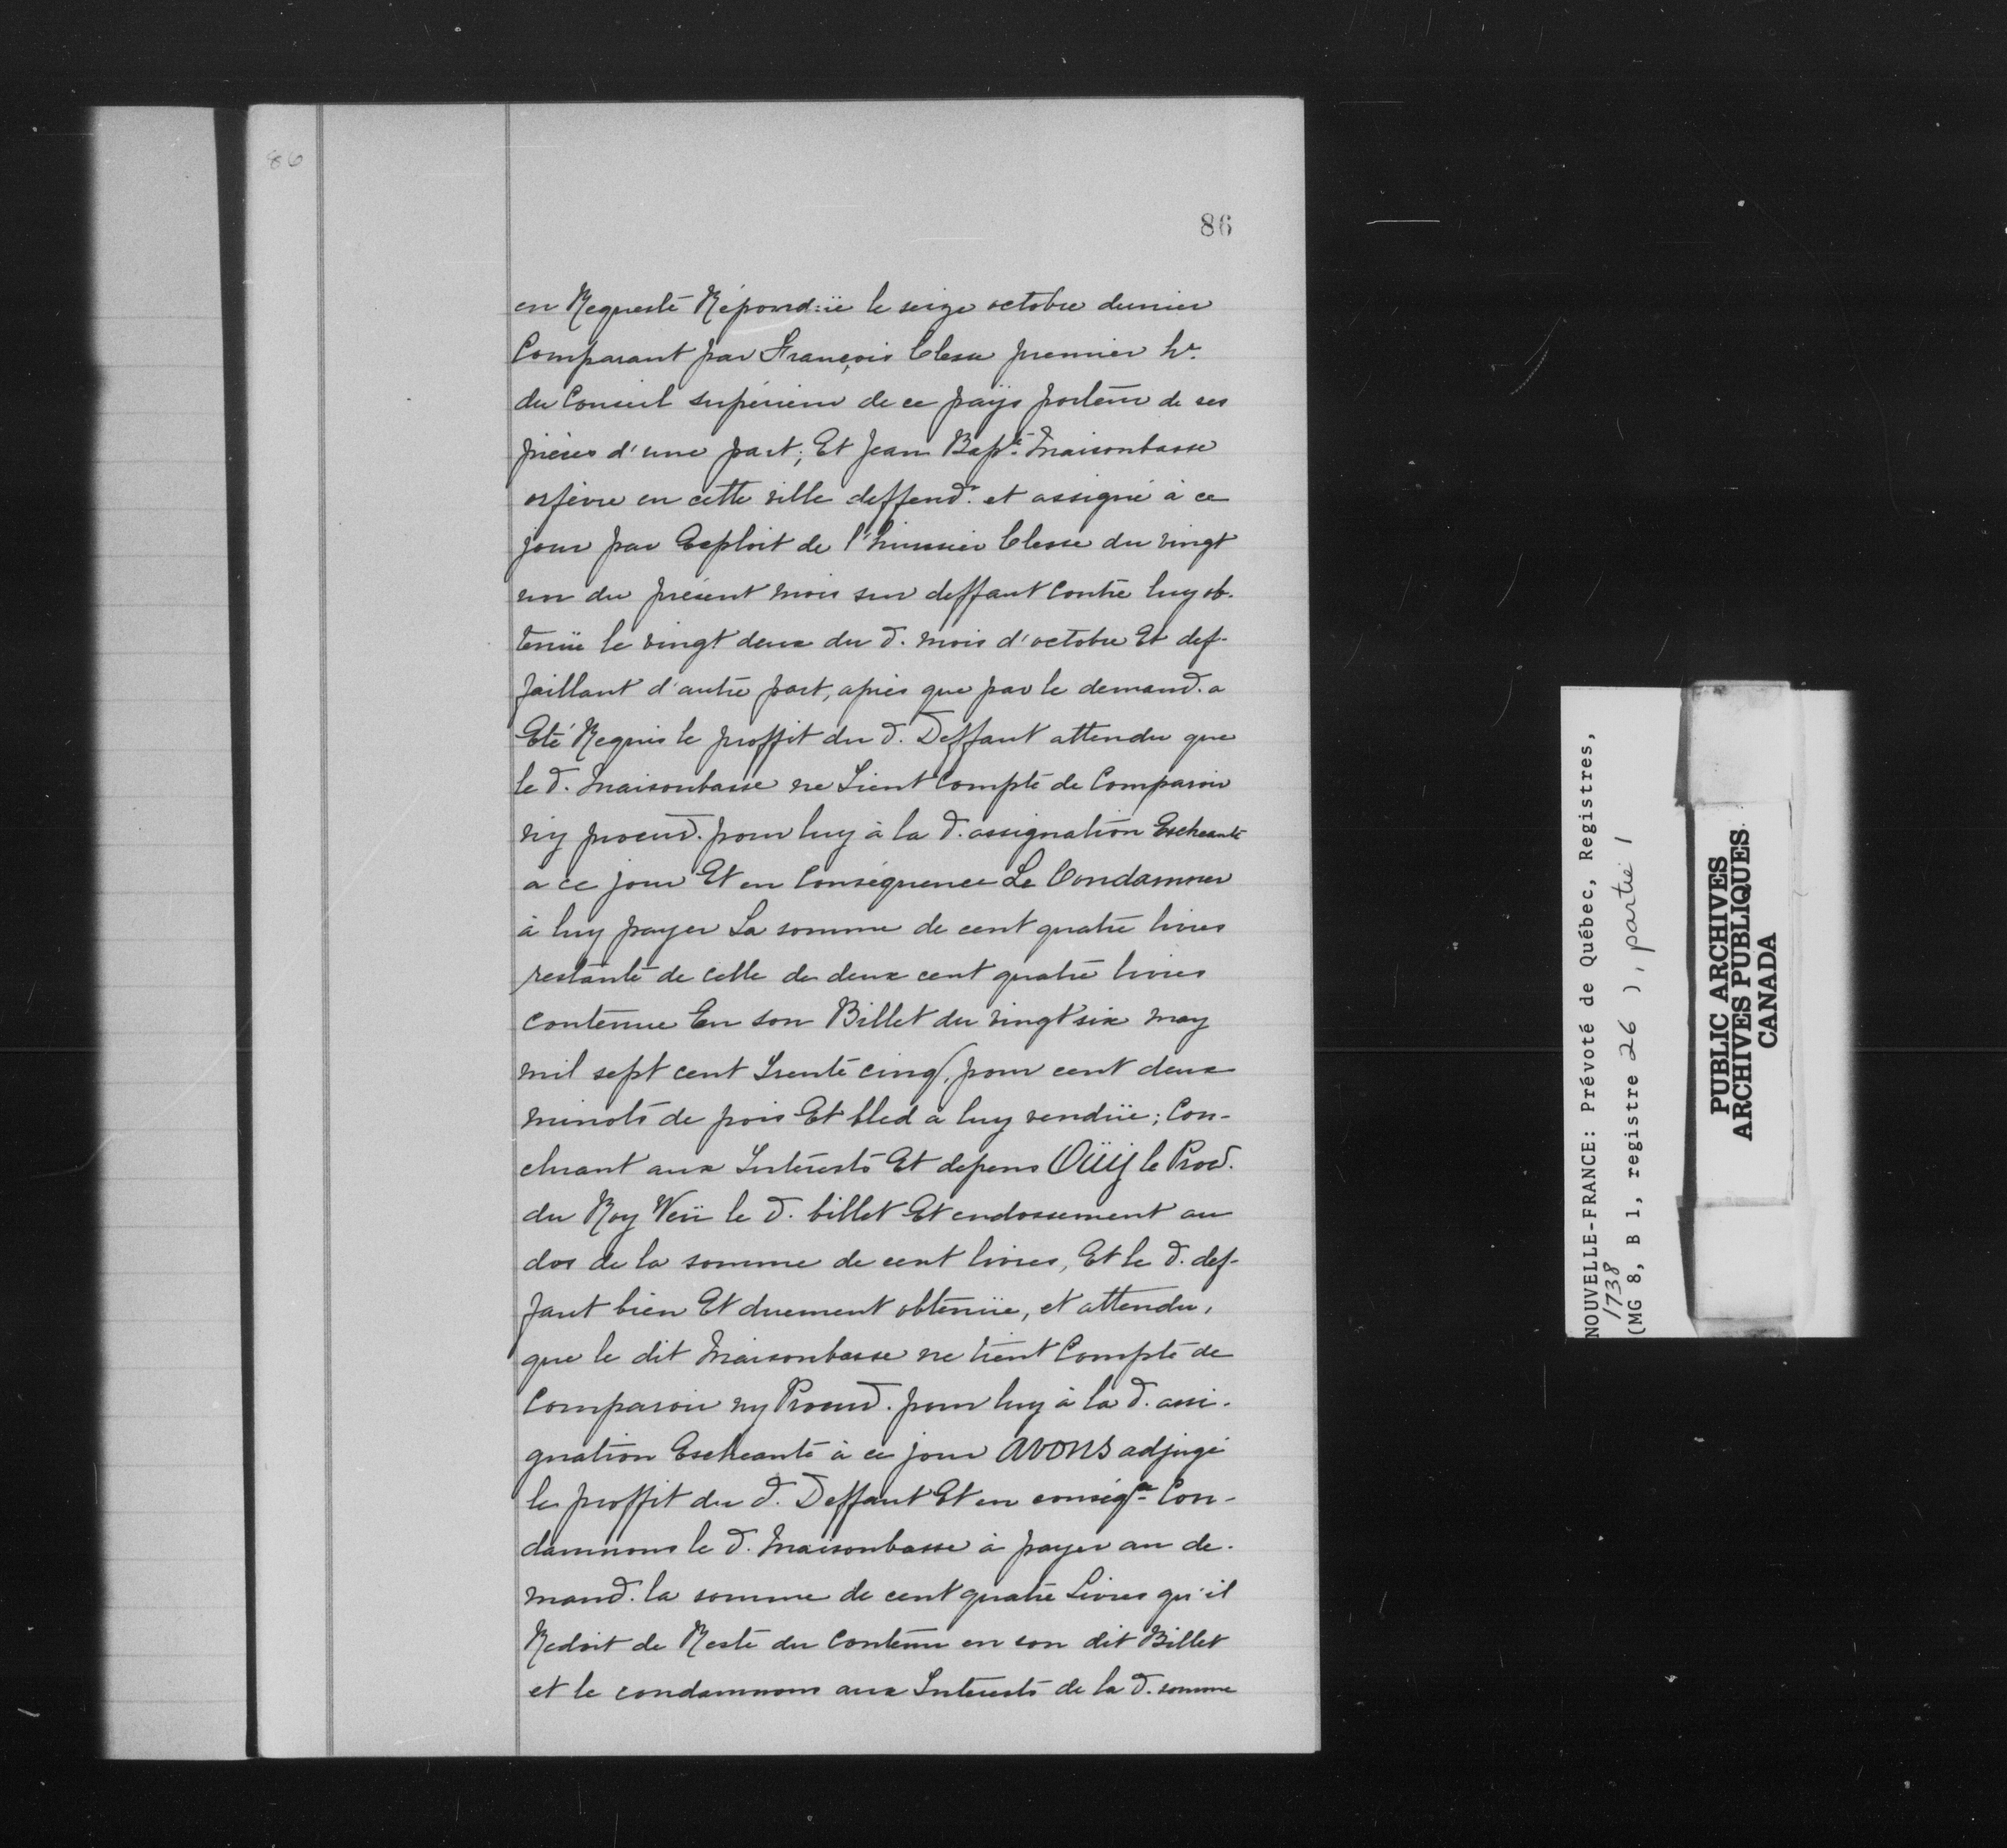 86
86
en Requeste Répond:üe le seize octobre dernier
Comparant par François Clesse premier hr.
du Conseil supérieur de ce païs porteur de ses
pièces d'une part; Et Jean Bapte. Maisonbasse
orfèvre en cette ville deffendr. et assigné à ce
jour par Exploit de l'huissier Clesse du vingt
un du présent mois sur deffaut contre luy ob-
tenüe le vingt deux du d. mois d'octobre Et def-
faillant d'autre part, après que par le demand. a
Eté Requis le proffit du d. Deffaut attendu que
le d. Maisonbasse ne Tient Compte de Comparoir
ny procur. pour luy à la d. assignation Escheante
a ce jour Et en Conséquence Le Condamner
à luy payer La somme de cent quatre livres
restante de celle de deux cent quatre livres
contenue En son Billet du vingt six may
mil sept cent Trente cinq, pour cent deux
minots de pois Et bled à luy vendüe; Con-
cluant aux Interests Et depens Oüij le Proc.
du Roy Veü le d. billet Et endossement au
dos de la somme de cent livres, Et le d. def-
faut bien Et duement obtenüe, et attendu,
que le dit Maisonbasse ne tient Compte de
Comparoir ny Procur. pour luy à la d. assi-
gnation Escheante à ce jour AVONS adjugé
le proffit du d. Deffaut Et en conséqce. Con-
damnons le d. Maisonbasse à payer au de-
mand. la somme de cent quatre Livres qu'il
Redoit de Reste du Contenu en son dit Billet
et le condamnons aux Interests de la d. somme
NOUVELLE-FRANCE: Prévoté de Québec, Registres,
1738
(MG 8, B 1, registre 26 ), partie 1
PUBLIC ARCHIVES
ARCHIVES PUBLIQUES
CANADA